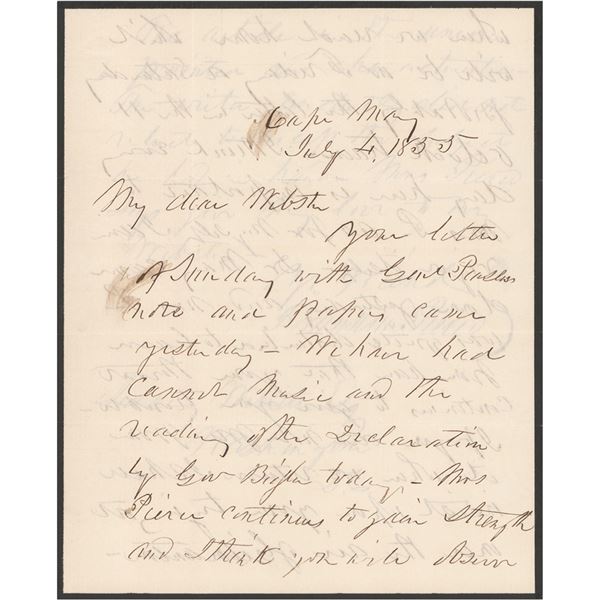 Cape May
July 4, 1855
My dear Webster
Your letter
of Sunday with Genl Peaslees
note and papers came
yesterday - We have had
cannon music and the
reading of the Declaration
by Gov Bigler today - Mrs
Pierce continues to gain strength
and I think you will observe